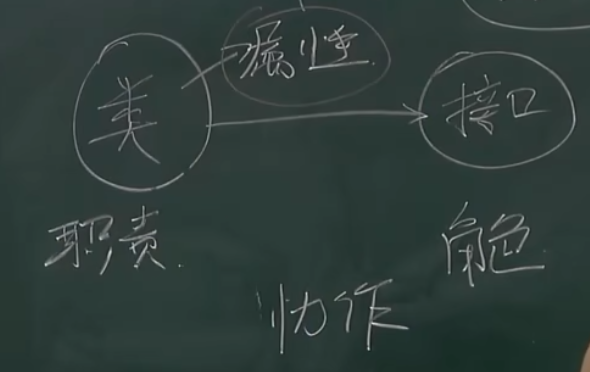 属性
类
接口
职责
角色
协作